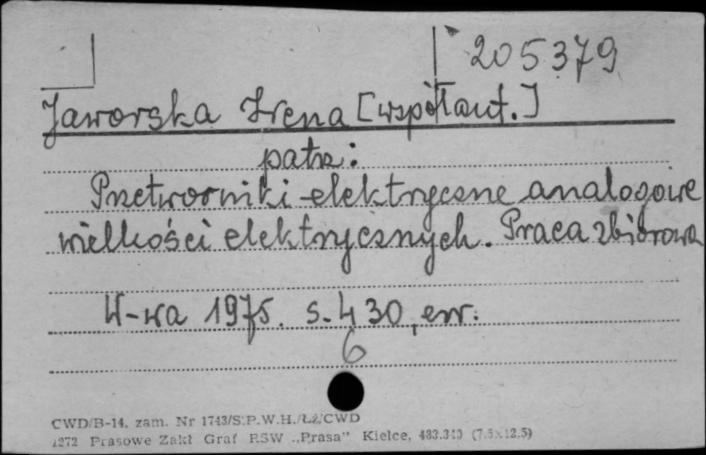 205379
Jaworska Irena [współaut.]
patrz:
Przetworniki elektryczne analogowe
wielkości elektrycznych. Praca zbiorowa
W-wa 1975. s. 430,
6
CWD/B-14, zam. Nr 1743/S.P.W.H./Łź/CWD
1272 Prasowe Zakł Graf RSW „Prasa" Kielce, 483.340 (7.5x12.5)